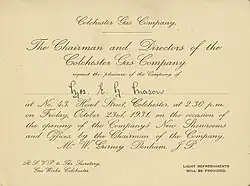 Colchester Gas Company.
The Chairman and Directors of the
Colchester Gas Company
request the pleasure of the Company of
E. G. Mason
at No. 43, Head Street, Colchester, at 2.30 p.m.
on Friday, October 23rd, 1931, on the occasion of
the opening of the Company's New Showrooms
and Offices by the Chairman of the Company,
Mr. W. Gurney Benham, J.P.
R.S.V.P. to The Secretary,
Gas Works, Colchester.
LIGHT REFRESHMENTS
WILL BE PROVIDED.